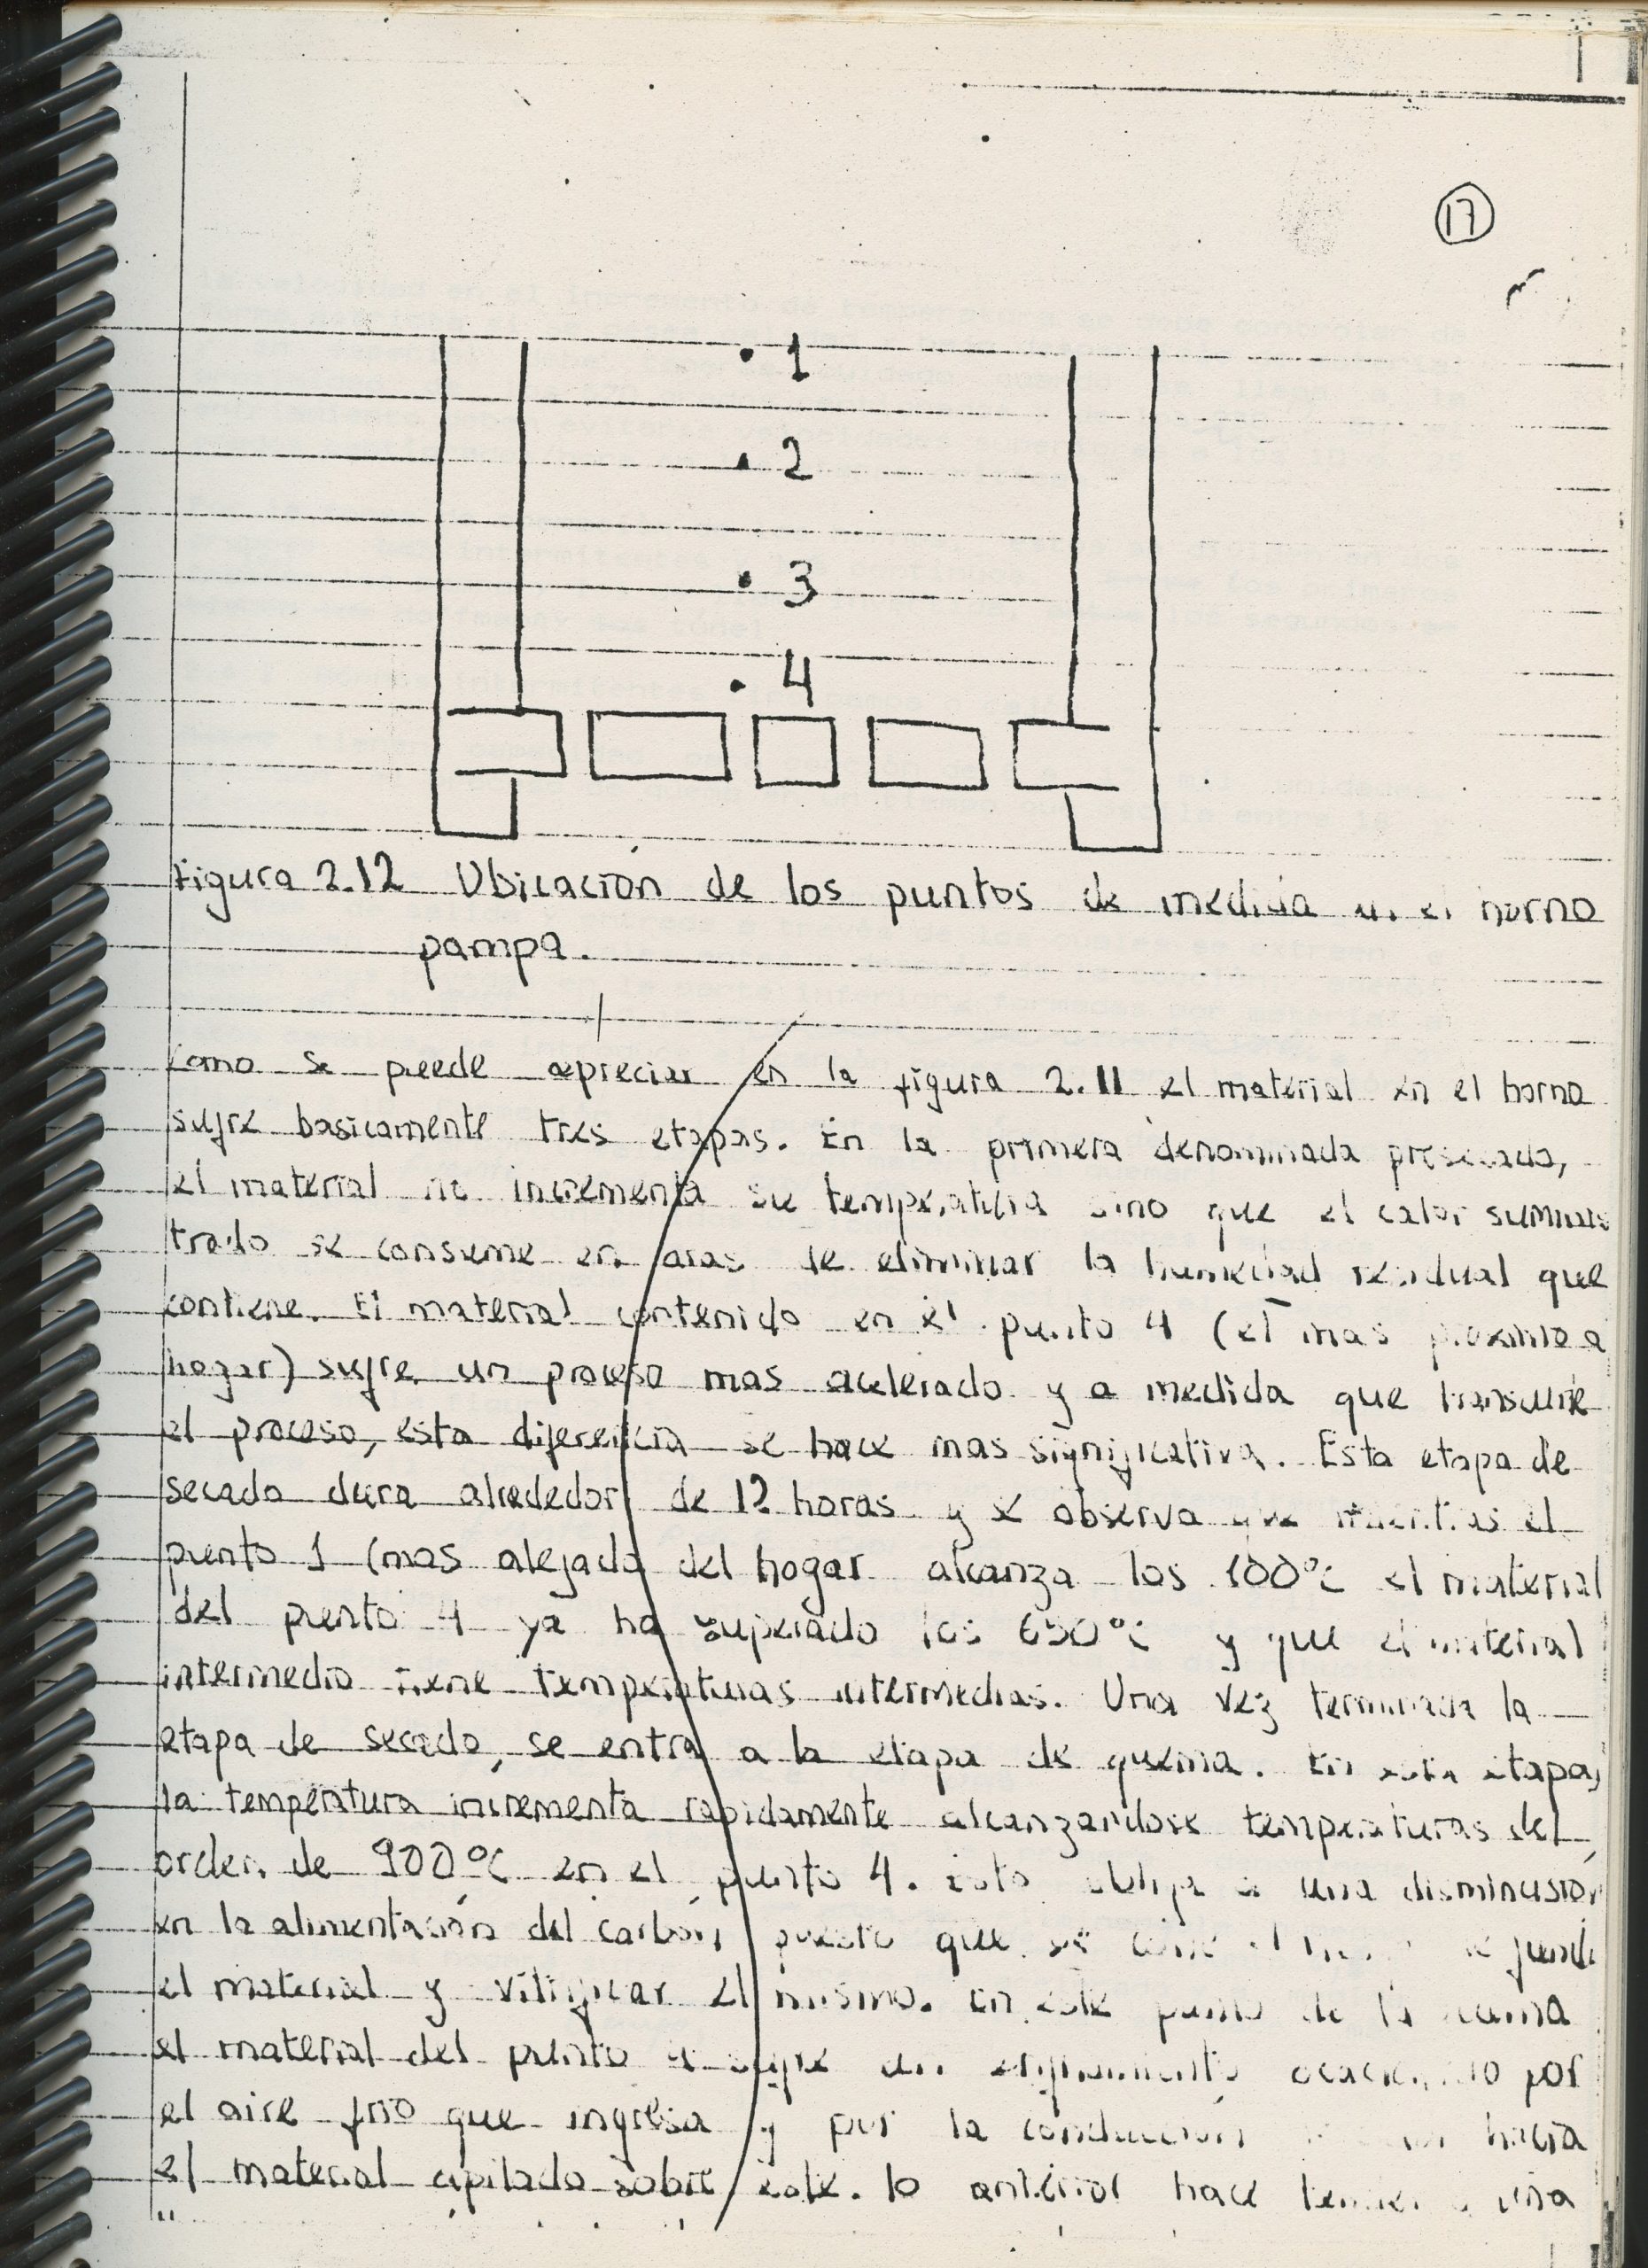 17
1
2
3
4
Figura 2.12 Ubicación de los puntos de medida en el horno
pampa.
Como se puede apreciar en la figura 2.11 el material en el horno
sufre basicamente tres etapas. En la primera denominada presecado,
el material no incrementa su temperatura sino que el calor suminis
trado se consume en aras de eliminar la humedad residual que
contiene. El material contenido en el punto 4 (el mas proximo a
hogar) sufre un proceso mas acelerado y a medida que transcurre
el proceso, esta diferencia se hace mas significativa. Esta etapa de
secado dura alrededor de 12 horas y se observa que mientras el
punto 1 (mas alejado del hogar alcanza los 100°C el material
del punto 4 ya ha superado los 650°C y que el material
intermedio tiene temperaturas intermedias. Una vez terminada la
etapa de secado, se entra a la etapa de quema. En esta etapa,
la temperatura incrementa rapidamente alcanzandose temperaturas del
orden de 900°C en el punto 4. Esto obliga a una disminusión
en la alimentación del carbón puesto que se corre el
el material y vitificar el mismo. En este punto de la quema
el material del punto 4 sufre un enfriamiento por
el aire frio que ingresa y por la conducción hacia
el material apilado sobre este. lo anterior hace una